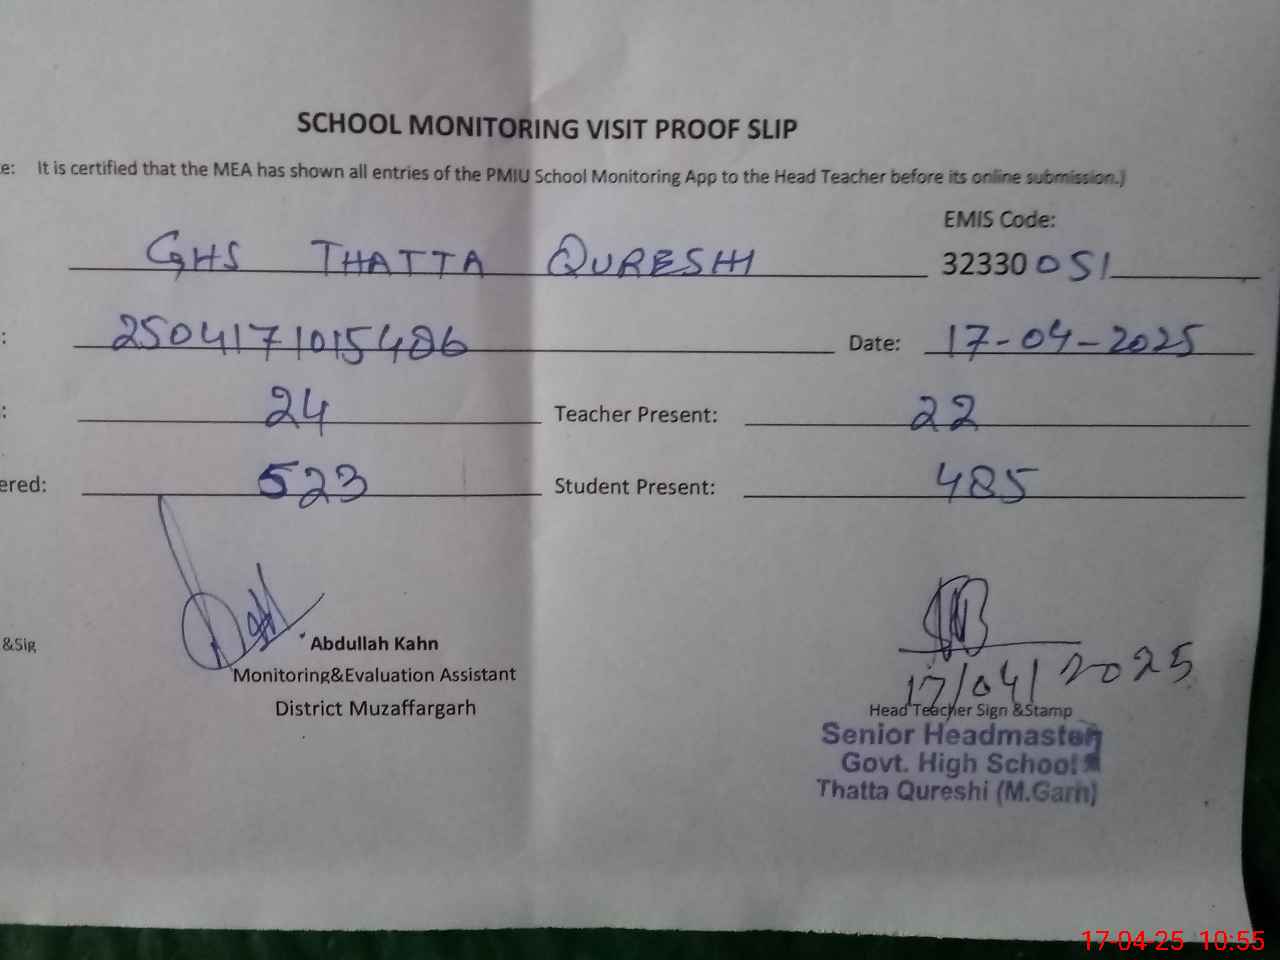 SCHOOL MONITORING VISIT PROOF SLIP
e: It is certified that the MEA has shown all entries of the PMIU School Monitoring App to the Head Teacher before its online submission.)
EMIS Code:
GHS THATTA QURESHI 32330051
: 2504171015486 Date: 17-04-2025
: 24 Teacher Present: 22
ered: 523 Student Present: 485
&Sig
Abdullah Kahn
Monitoring&Evaluation Assistant
District Muzaffargarh
17/04/2025
Head Teacher Sign &Stamp
Senior Headmaster
Govt. High School
Thatta Qureshi (M.Garh)
17-04-25 10:55